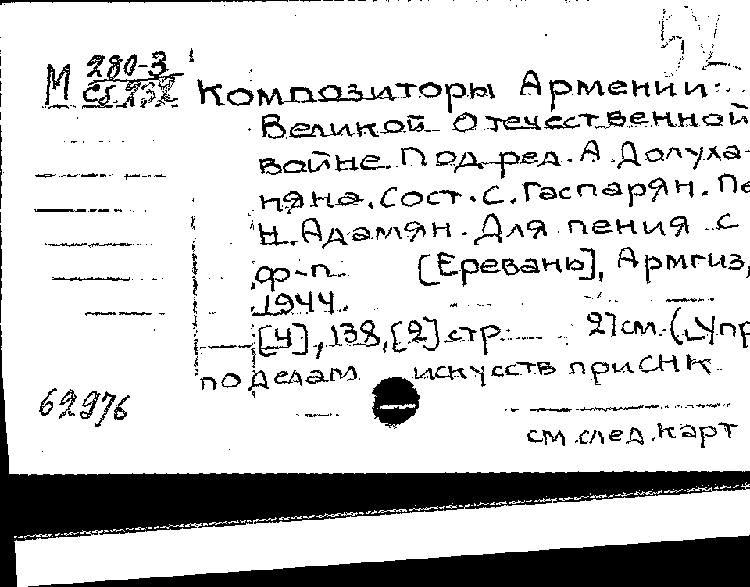 52
М 280-3
Сб. 232
Композиторы Армении
Великой Отечественной
войне. Под ред. А. Долуха-
няна. Сост. С. Гаспарян. Пе
Н. Адамян. Для пения с
ф-п. [Ереван], Армгиз,
1944.
[4], 138, [2] стр. 27 см. (Упр
по делам искусств при СНК
62976
см. след. карт